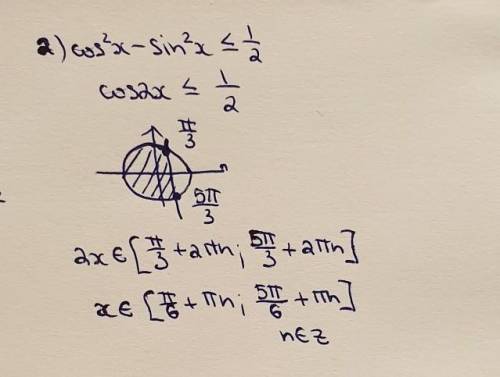 2) cos²x - sin²x ≤ 1/2
cos2x ≤ 1/2
π/3
5π/3
2x ∈ [π/3 + 2πn; 5π/3 + 2πn]
x ∈ [π/6 + πn; 5π/6 + πn]
n ∈ z